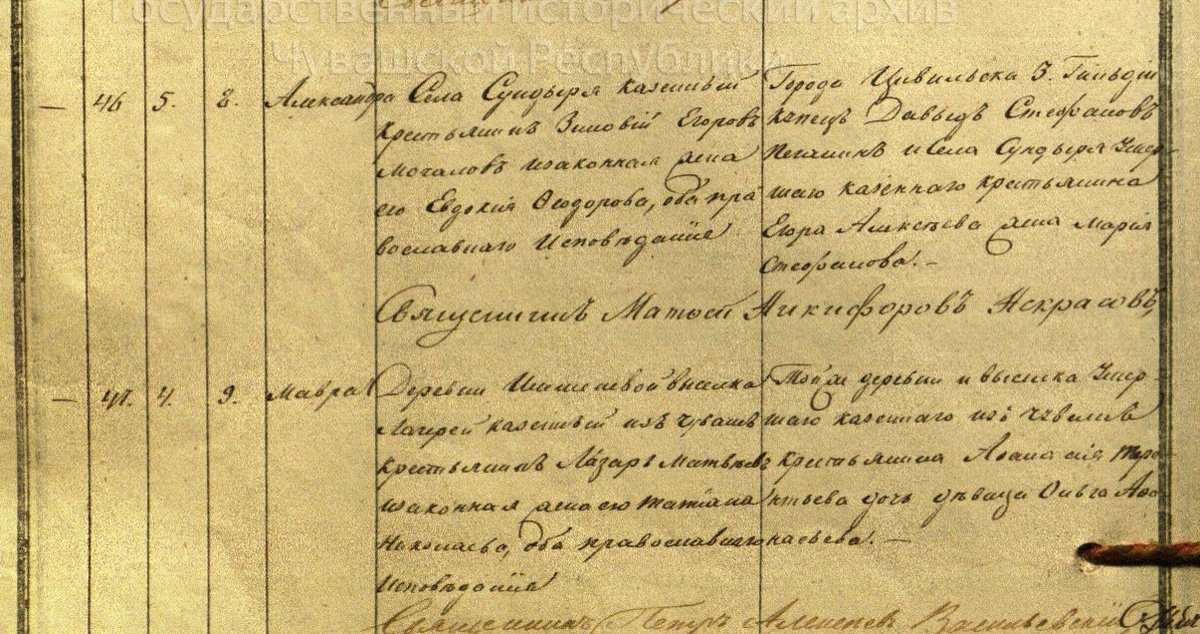 Государственный исторический архив
Чувашской Республики
— 46 5. 8. Александра
Села Сундыря казенный
крестьянинъ Зиновій Егоровъ
Мочаловъ и законная жена
его Евдокія Ѳеодорова, оба пра
вославнаго Исповѣданія
Города Цивильска 3. Гильдіи
купецъ Давыдъ Стефановъ
и Села Сундыря Умер-
шаго казеннаго крестьянина
Егора Алексѣева жена Марія
Стефанова. —
Священникъ Матѳей Никифоровъ Некрасовъ,
— 47. 4. 9. Мавра
Деревни выселка
казенный изъ чувашъ
крестьянинъ Лазарь Матвѣевъ
и законная жена его Татіана
Николаева, оба православнаго
Исповѣданія
Той же деревни и выселка Умер-
шаго казеннаго изъ чувашъ
крестьянина Аѳанасія Тере-
нтьева дочь дѣвица Ольга Аѳа-
насьева. —
Священникъ Петръ Алексѣевъ Васильевскій